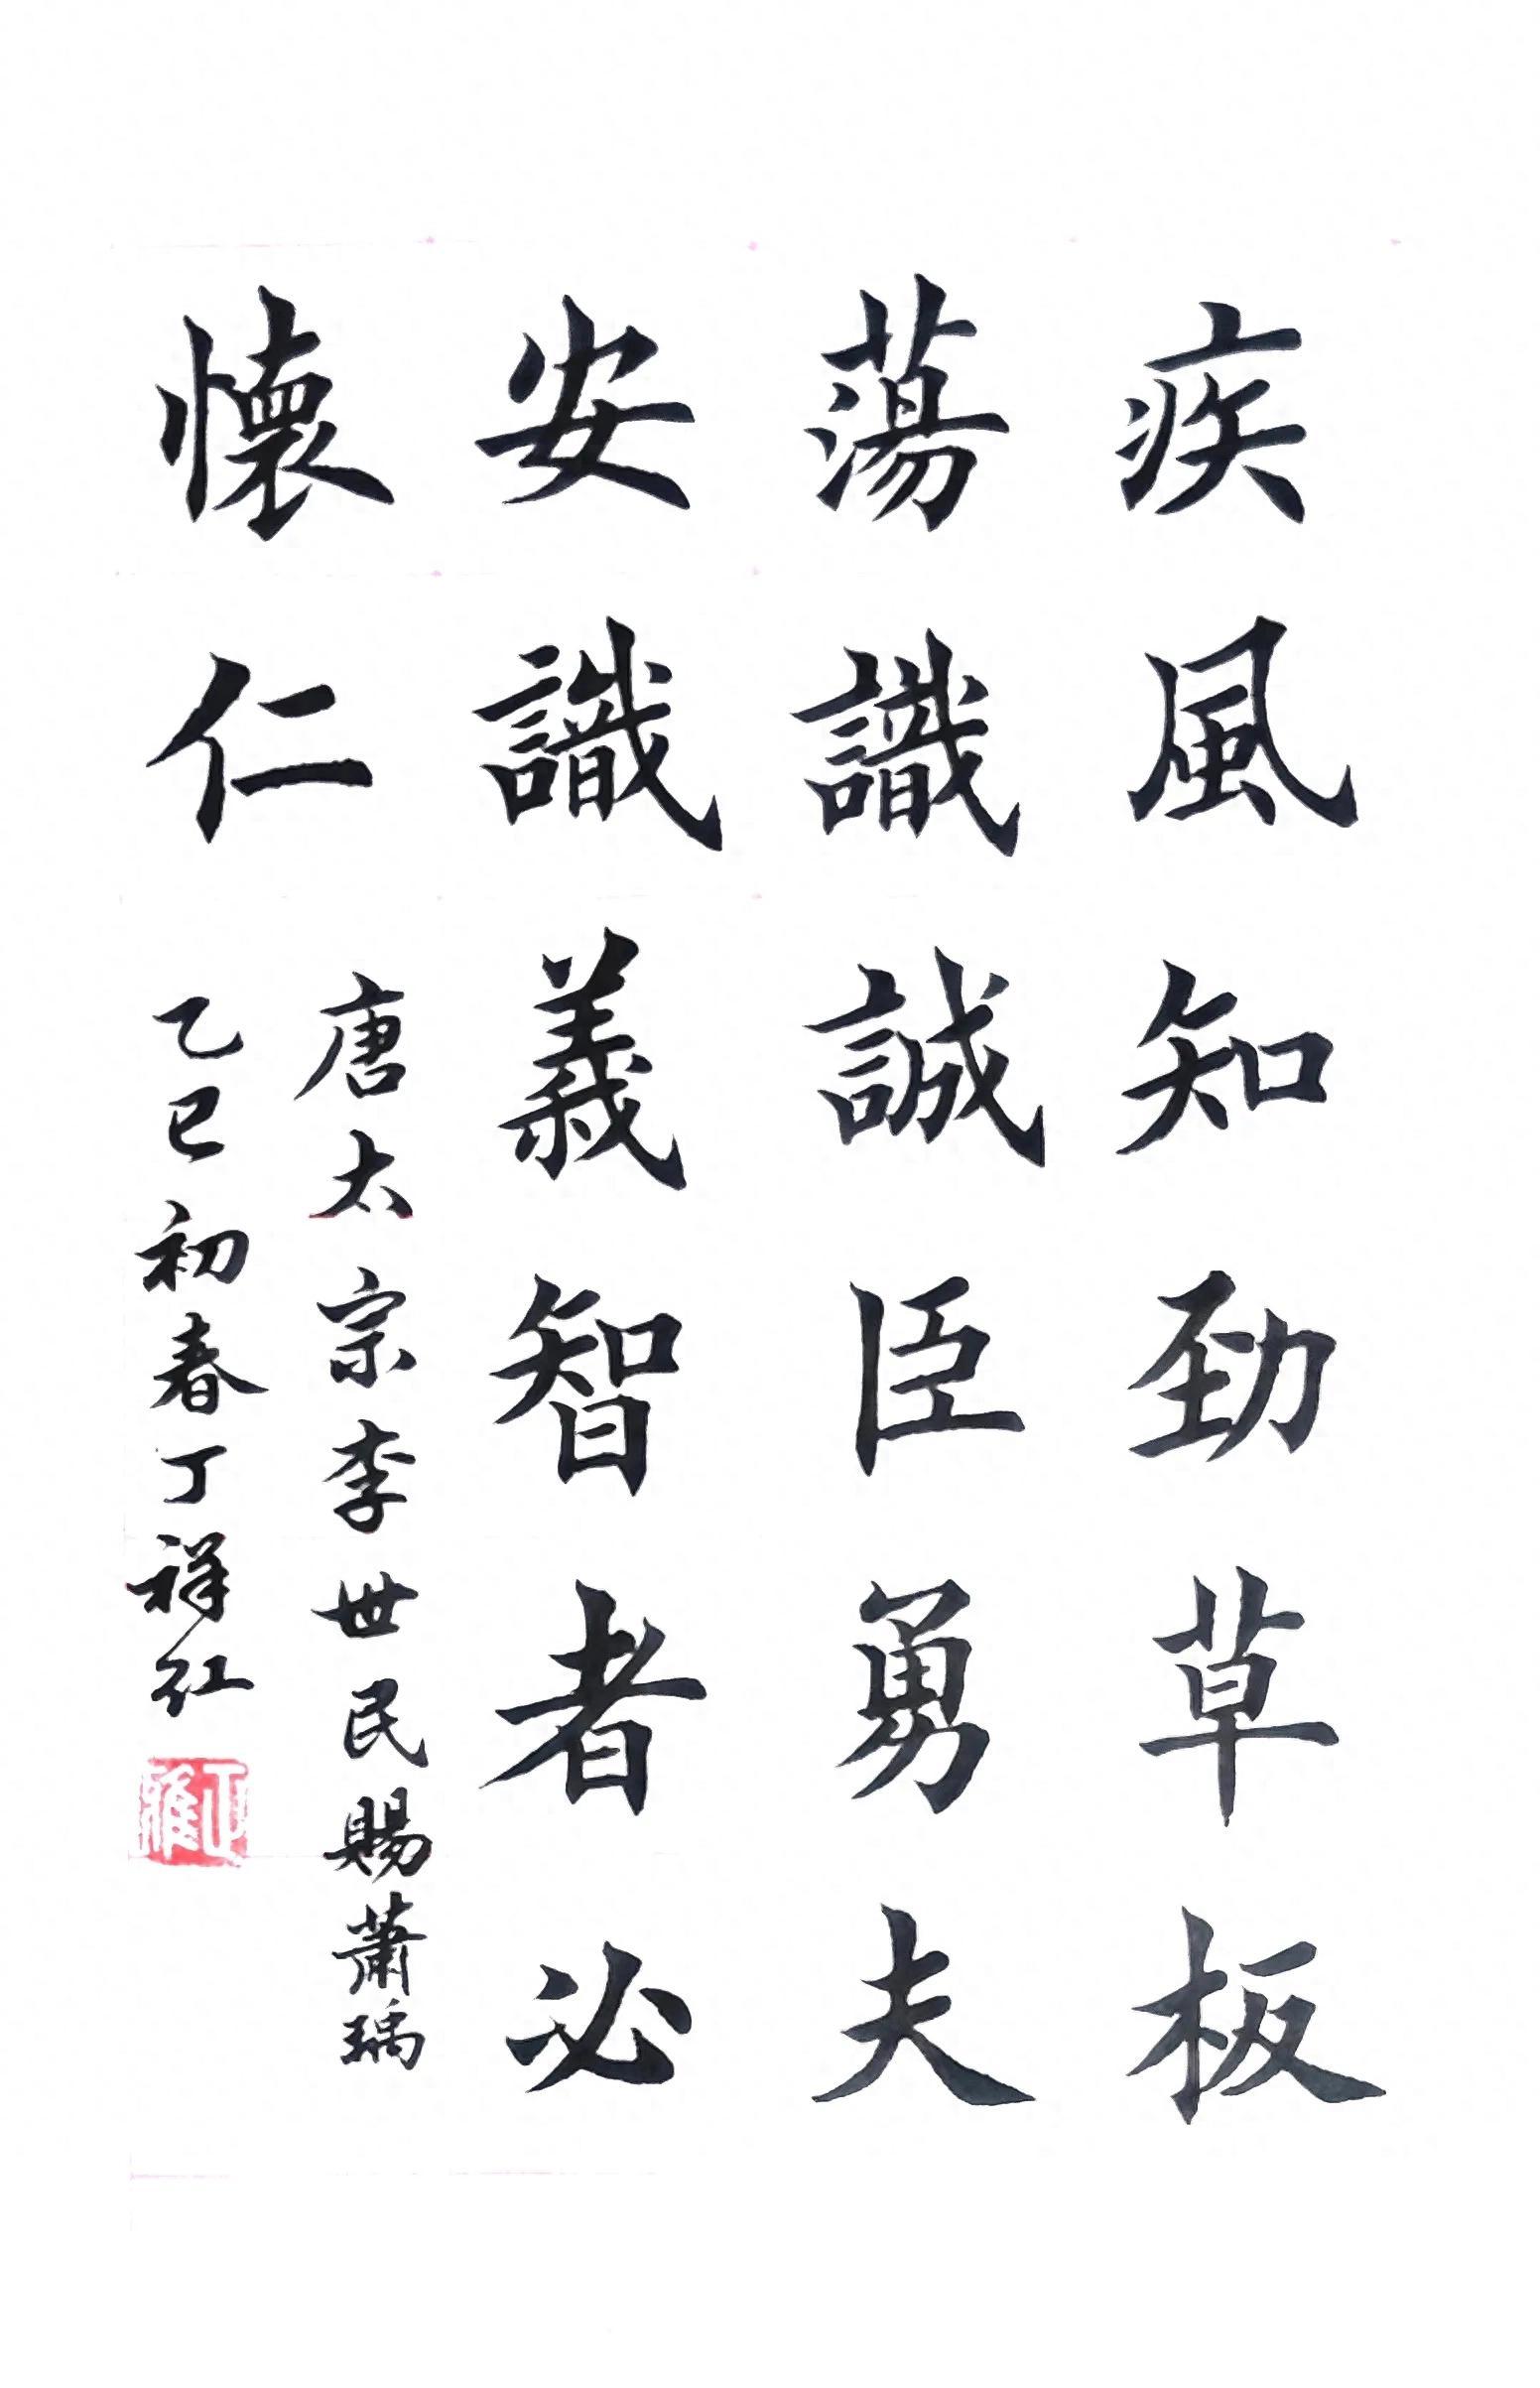 疾風知勁草板
蕩識誠臣勇夫
安識義智者必
懷仁
唐太宗李世民賜蕭瑀
乙巳初春丁祥红